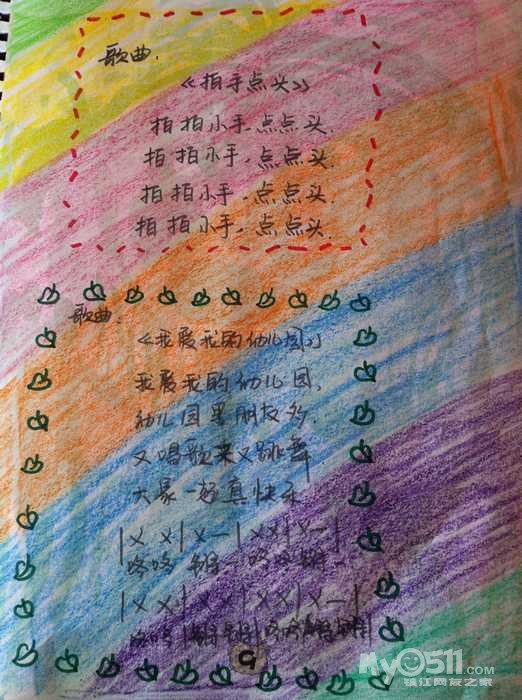 歌曲.
《拍手点头》
拍拍小手,点点头.
拍拍小手,点点头.
拍拍小手,点点头.
拍拍小手,点点头.
歌曲.
《我爱我的幼儿园》
我爱我的幼儿园,
幼儿园里朋友多.
又唱歌来又跳舞
大家一起真快乐
|X X|X—|X X|X—|
|X X|X X|X X|X—|
9
My0511.com
镇江网友之家